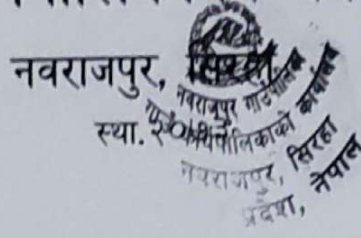 नवराजपुर, सिरहा
स्था. २०७३
नवराजपुर गाउँपालिका
गाउँ कार्यपालिकाको कार्यालय
नवराजपुर, सिरहा
प्रदेश, नेपाल